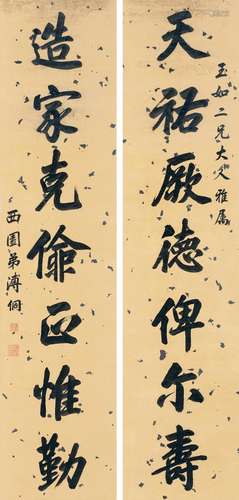 玉如二兄大人雅属
天祐厥德俾尔寿
造家克俭正惟勤
西园弟溥侗